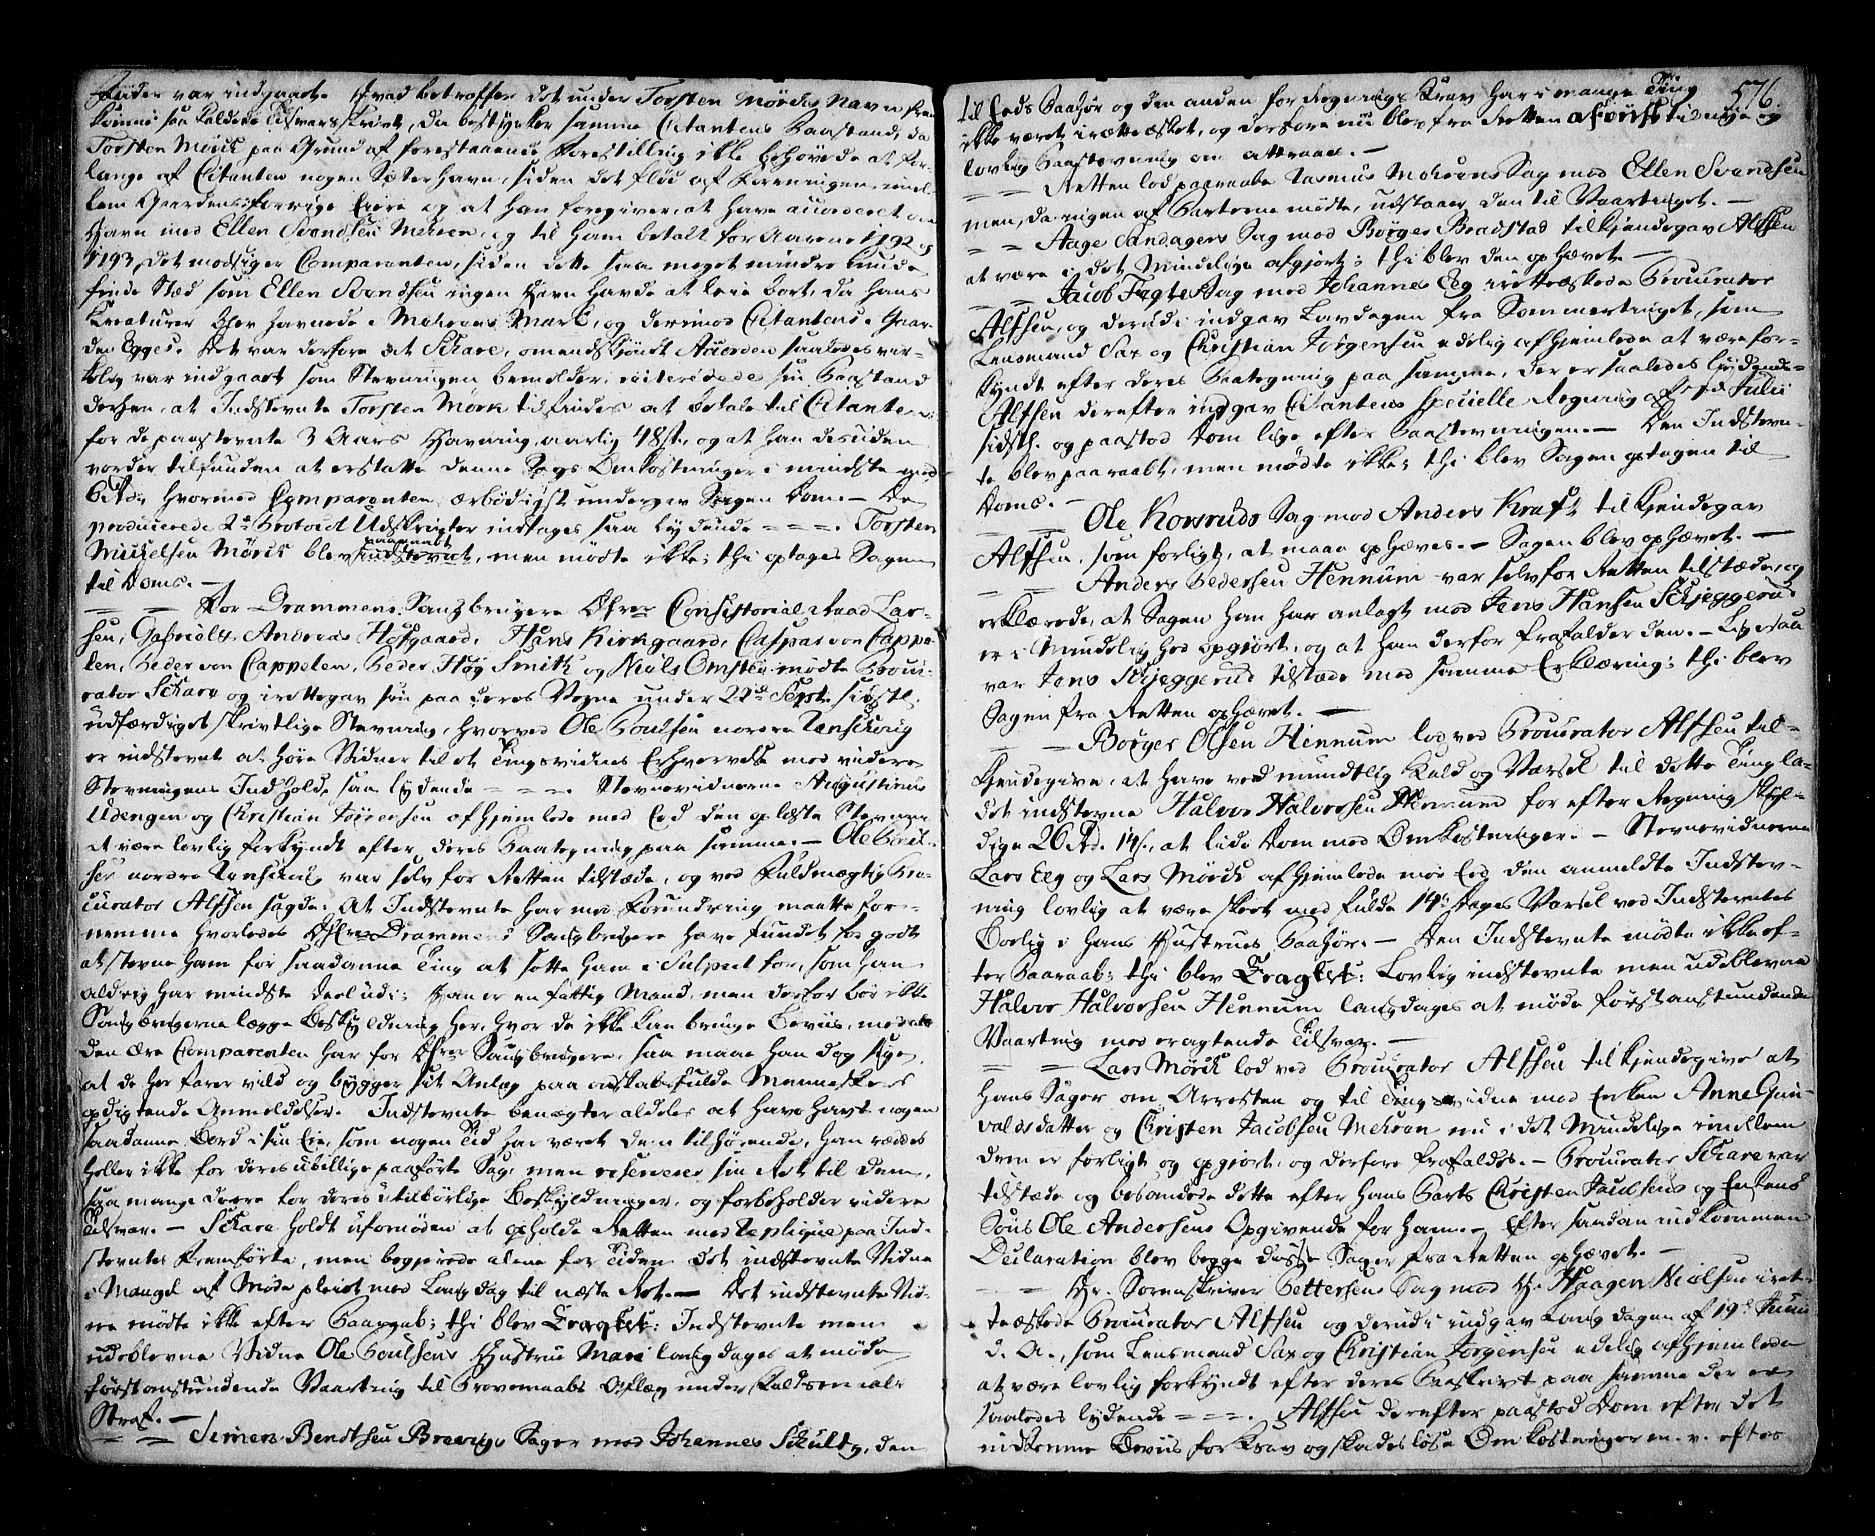 Tiider var indgaaet. Hvad betræffer det under Torsten Mørchs Navn frem
komne saa kaldede Tilsvars skrivt, da bestyrker samme Citantens Paastand, da
Torsten Mørch paa Grund af forestaaende Forestilling ikke behøvede at for-
lange af Citanten nogen Sæterhavn, siden det flød af Foreningen imel-
lem Gaardens forrige Eiere og at han foregiver, at have accorderet om
Havn med Ellen Svendsen Mehren, og til ham betalt for Aarene 1792 og
1793, det modsiger Comparenten, siden dette saa meget mindre kunde
finde Sted som Ellen Svendsen ingen Havn havde at leie bort, da hans
Kreaturer blev havnede i Mehrens Mark, og derimod Citantens i Gaar-
den Egges. Det var derfore at Schare, omendskjøndt Accorden saaledes vir-
kelig var indgaaet som Stevningen bemelder, reiterede sin Paastand
derhen, at Indstevnte Torsten Mørk tilfindes at betale til Citanten
for de paastevnte 3 Aars Havning, aarlig 48 s., og at han desuden
vorder tilfunden at erstatte denne Sags Omkostninger i mindste med
hvormed Comparenten ærbødigst undergav Sagen Dom. — De
producerede 2de Protocol Udskrivter indtages saa lydende = = =. Torsten
Michelsen Mørch blev paaraabt, men mødte ikke; thi optages Sagen
til Doms. —
= = For Drammens Saugbrugere Hrr. Consistorial Raad Lar-
sen, Gabriel, Andreas Hofgaard, Hans Kirkgaard, Caspar von Cappe-
len, Peder von Cappelen, Peder Høg Smith og Niels Omsted mødte Procu-
rator Schare og irettegav sin paa deres Vegne under 22de Sept. sidstl.
udfærdiget skrivtlige Stevning, hvorved Ole Poulsen nordre
er indstevnt at høre Vidner til et Tingsvidnes Erhvervelse med videre
Stevningens Indhold, saa lydende = = =. Stevnevidnerne Augustinus
Udengen og Christian Jørgensen afhjemlede med Eed den oplæste Stevning
at være lovlig forkyndt efter deres Paategning paa samme. — Ole Poul-
sen nordre var selv for Retten tilstæde, og ved Fuldmægtig Pro-
curator Alfsen sagde: At Indstevnte har med Forundring maatte for-
nemme hvorledes Hrr. Drammens Saugbrugere have fundet for godt
at stevne ham for saadanne Ting at sette ham i Suspect for, som han
aldrig har mindste deel udi; Han er en fattig Mand, men derfor bør ikke
Saugbrugerne lægge Beskyldning her, hvor de ikke kan bringe Beviis, med al
den ære Comparenten har for Hrr. Saugbrugere, saa maae han dog sige,
at de her farer vild og bygger sit Anlæg paa ondskabsfulde Menneskers
opdigtende Anmeldelser. Indstevnte benægter aldeles at have havt nogen
saadanne Bord i sin Eie, som nogen Tid har været dem tilhørende, han ræddes
heller ikke for deres ubillige paaførte Sag, men reserverer sin Ret til dem,
saa mange deere for deres utilbørlige Beskyldninger, og forbeholder videre
Tilsvar. — Schare holdt ufornøden at opholde Retten med Replique paa Ind-
stevntes Fremførte, men begjerede alene for Tiden det indstevnte Vidne
i Mangel af Møde pleiet med Laugdag til næste Ret. — Det indstevnte Vid-
ne mødte ikke efter Paaraab; thi blev Eragtet: Indstevnte men
udeblevne Vidne Ole Poulsens Hustrue Mari laugdages at møde
førstanstundende Vaarting til Provemaals Aflæg under Faldsmaals
Straf. —
= = Simen Bendtsen Bragrigs Sager mod Johannes Schultz, den
576.
til Eeds Paahør og den anden for Regnings Krav har i mange Ting
ikke været i rette æsket, og derfore nu blev fra Retten afviist til nye og
lovlig Paastevning om attraaes. —
= = Retten lod paaraabe Rasmus Mehrens Sag mod Ellen Svendsen
men, da ingen af Parterne mødte, udstaaer den til Vaartinget. —
= = Aage Sandagers Sag mod Børger Bradstad tilkjendegav Alfsen
at være i det Mindelige afgjort; thi blev den ophævet. —
= = Jacob Fegtes Sag mod Johannes Eeg irettæskede Procurator
Alfsen, og derudi indgav Lavdagen fra Sommertinget, som
Lensmand Sax og Christian Jørgensen edelig afhjemlede at være for-
kyndt efter deres Paategning paa samme, der er saaledes lydende =
Alfsen derefter indgav Citantens specielle Regning af Julii
sidstl. og paastod Dom lige efter Paastevningen. — Den Indstevn-
te blev paaraabt, men mødte ikke; thi blev Sagen optagen til
Doms. —
= Ole Korsruds Sag mod Anders Kraft tilkjendegav
Alfsen, som forligt, at maae ophæves. — Sagen blev ophævet. —
= = Anders Pedersen Hennum var selv for Retten tilstæde, og
erklærede, at Sagen han har anlagt mod Jens Hansen Skjeggerud
er i Mindelighed opgjort, og at han derfor frafalder den. — Ligesaa
var Jens Skjeggerud tilstæde med samme Erklæring; thi blev
Sagen fra Retten ophævet. —
= = Børger Olsen Hennum lod ved Procurator Alfsen til-
kjendegive, at have ved mundtlig Kald og Varsel til dette Ting la-
det indstevne Halvor Halvorsen Hennum for efter Regning skyl-
dige 26 Rd. 14 s., at lide Dom med Omkostninger. — Stevnevidnerne
Lars Eeg og Lars Mørch afhjemlede med Eed den anmeldte Indstev-
ning lovlig at være skeet med fulde 14 Dages Varsel ved Indstevntes
Boelig i hans Hustrues Paahør. — Den Indstevnte mødte ikke ef-
ter Paaraab; thi blev Eragtet: Lovlig indstevnte men udeblevne
Halvor Halvorsen Hennum laugdages at møde førstanstundende
Vaarting med eragtende Tilsvar. —
= = Lars Mørch lod ved Procurator Alfsen tilkjendegive at
hans Sager om Arresten og til Tingsvidne mod Enken Anne Gun-
valdsdatter og Christen Jacobsen Mehren nu i det Mindelige imellem
dem er forligt og opgjort, og derfore frafaldes. — Procurator Schare var
tilstæde og besandede dette efter hans Parts Christen Jacobsens og Enkens
Søns Ole Andersens Opgivende for ham. — Efter saadan indkommen
Declaration blev begge disse Sager fra Retten ophævet. —
= = Hr. Sorenskriver Pettersens Sag mod Hr. Haagen Nielsen iret-
teæskede Procurator Alfsen og derudi indgav Laugdagen af 19de Junii
d. A., som Lensmand Sax og Christian Jørgensen edelig afhjemlede
at være lovlig forkyndt efter deres Paaskrivt paa samme der er
saaledes lydende = = =. Alfsen derefter paastod Dom efter det
indkomne Beviis for Krav og skadesløse Omkostninger m. v. efter